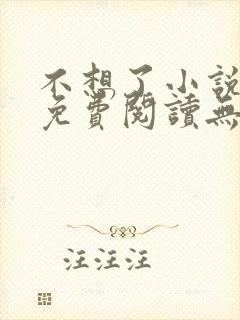 不想了小說
免費閱讀無
汪汪汪